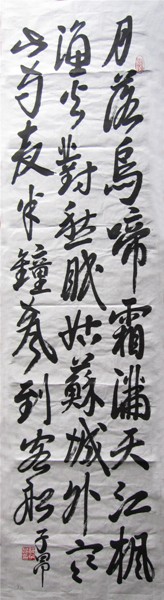 月落烏啼霜滿天江楓
漁火對愁眠姑蘇城外寒
山寺夜半鐘聲到客船
子昂